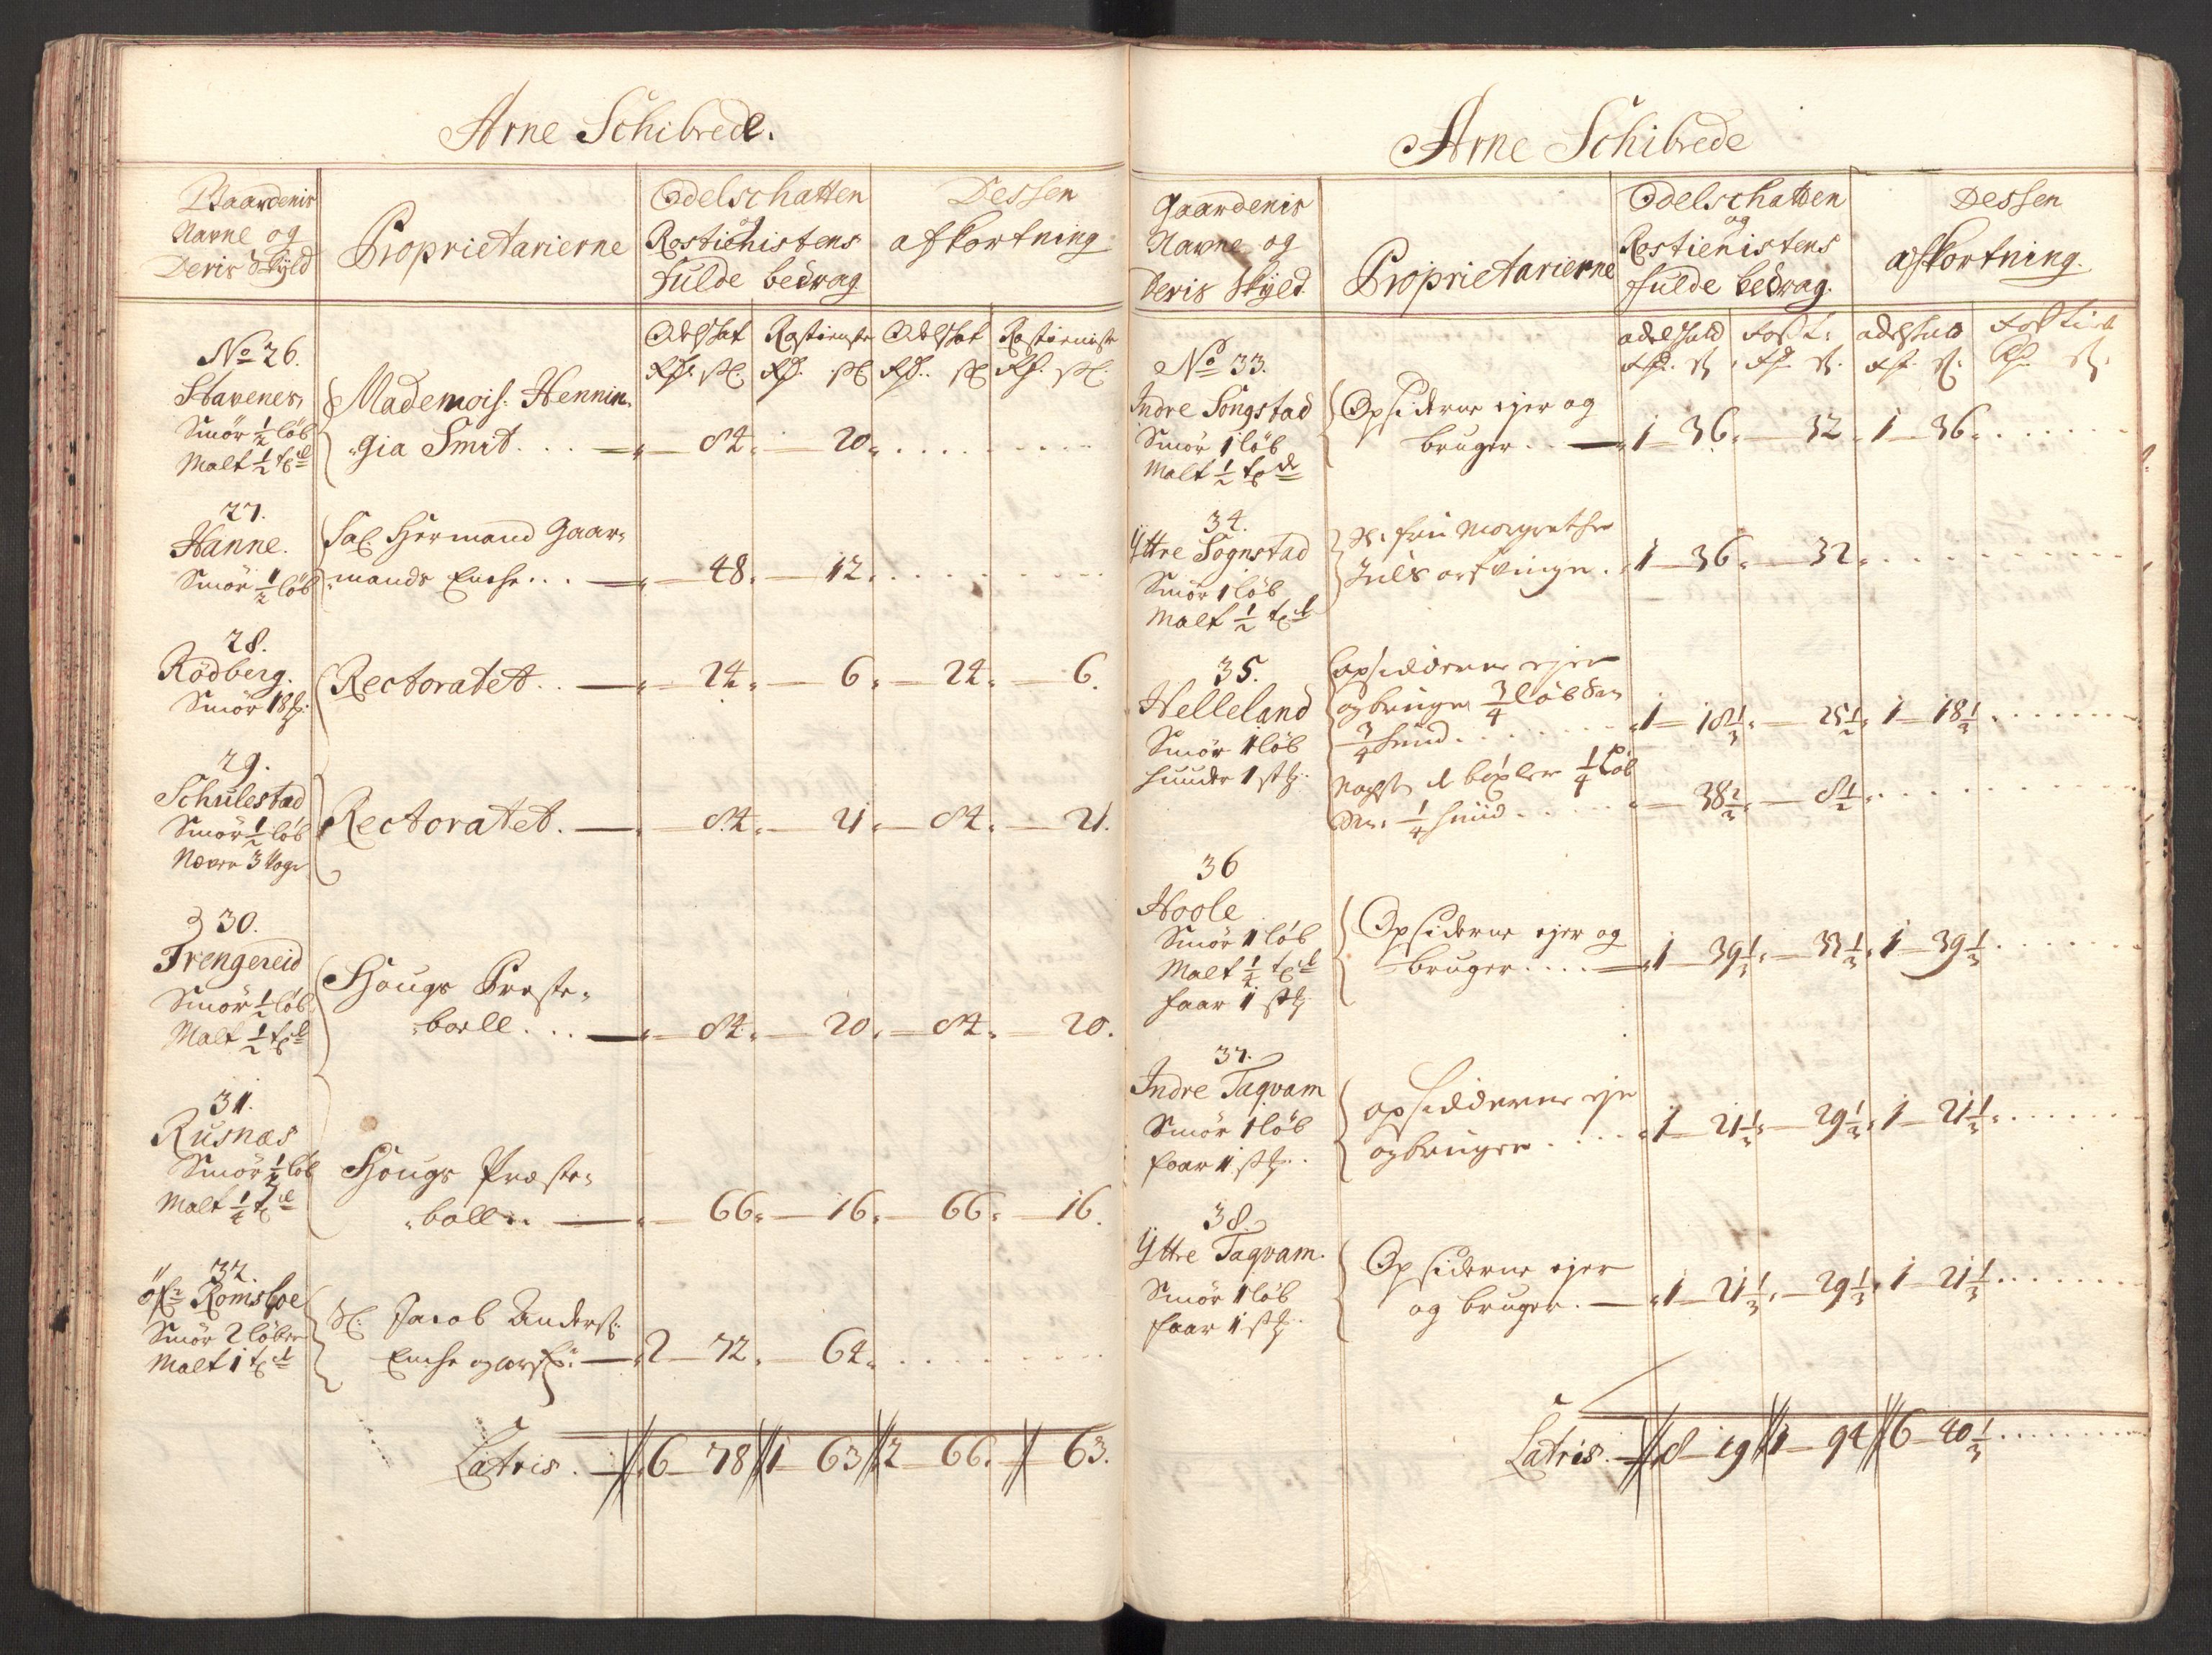 Arne Schibrede.
Gaardenis
Navne og
Deris Skyld
Proprietarierne
Odelschatten
og
Rostienistens
fulde bedrag
Dessen
afkortning
Odelskat Rostienste Odelskat Rostieniste
Rd. s. Rd. s. Rd. s. Rd. s.
No 26.
Havenes,
Smör 1/2 löb
Malt 1/2 td
Mademois: Hennin-
gia Smit. . . — 84. — 20.
27.
Hanne.
Smör 1/2 löb
Sal. Hermand Gaar-
mands Enche. . . — 48. — 12.
28.
Rödberg.
Smör 18 .
Rectoratet. . — 24. — 6. — 24. — 6.
29.
Schulestad
Smör 1/2 löb
Næver 3 Voge
Rectoratet. — 84. — 21. — 84. — 21.
30.
Trengereid
Smör 1/2 löb
Malt 1/2 td
Hougs Preste-
boell. . . — 84. — 20. — 84. — 20.
31.
Rusnæs
Smör 1/2 löb
Malt 1/4 td
Hougs Præste-
boll. . — 66. — 16. — 66. — 16.
32.
öfr Romsloe
Smör 2 löber
Malt 1 td
Sl: Jacob Anders:
Enche og arf: — 2 — 72. — 64.
Latris. — 6 — 78 1 — 63 2 — 66. — 63.
Arne Schibrede
Gaardenis
Navne og
Deris Skyld
Proprietarierne
Odelschatten
og
Rostienistens
fulde bedrag.
Dessen
afkortning.
No 33.
Indre Songstad
Smör 1 löb
Malt 1/2 td
Opsiderne ejer og
bruger. . — 1 — 36. — 32. 1 — 36.
34.
Yttre Sognstad
Smör 1 löb
Malt 1/2 td
Sl: fru Margrethe
Juels arfvinger. 1 — 36. — 32.
35.
Helleland
Smör 1 löb
huuder 1 st
Opsidderne ejer
og bruger 3/4 löb Sm
3/4 huud. . . 1 — 18 1/3. — 25 1/2. 1 — 18 1/3.
bøxler 1/4 Löb
Sm. 1/4 huud. . . — 38 2/3. — 8 1/2.
36
Hoole
Smör 1 löb
Malt 1/4 td
faar 1 st
Opsiderne ejer og
bruger. . . . — 1 — 39 1/3. — 33 1/3. 1 — 39 1/3.
37.
Indre Taqvam
Smör 1 löb
faar 1 st
opsidderne eje
og bruger. . . . 1 — 21 1/3. — 29 1/3. 1 — 21 1/3.
38.
Yttre Taqvam.
Smör 1 löb
faar 1 st
Opsiderne ejer
og bruger. — 1 — 21 1/3. — 29 1/3. 1 — 21 1/3.
Latris. — 8 — 19 1 — 94 6 — 40 1/3.